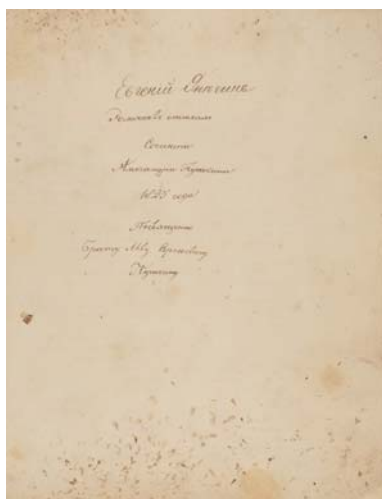 Евгеній Онѣгинъ
Романъ въ стихахъ
Сочиненіе
Александра Пушкина
1825 года
Посвящено
Брату Льву Сергѣевичу
Пушкину